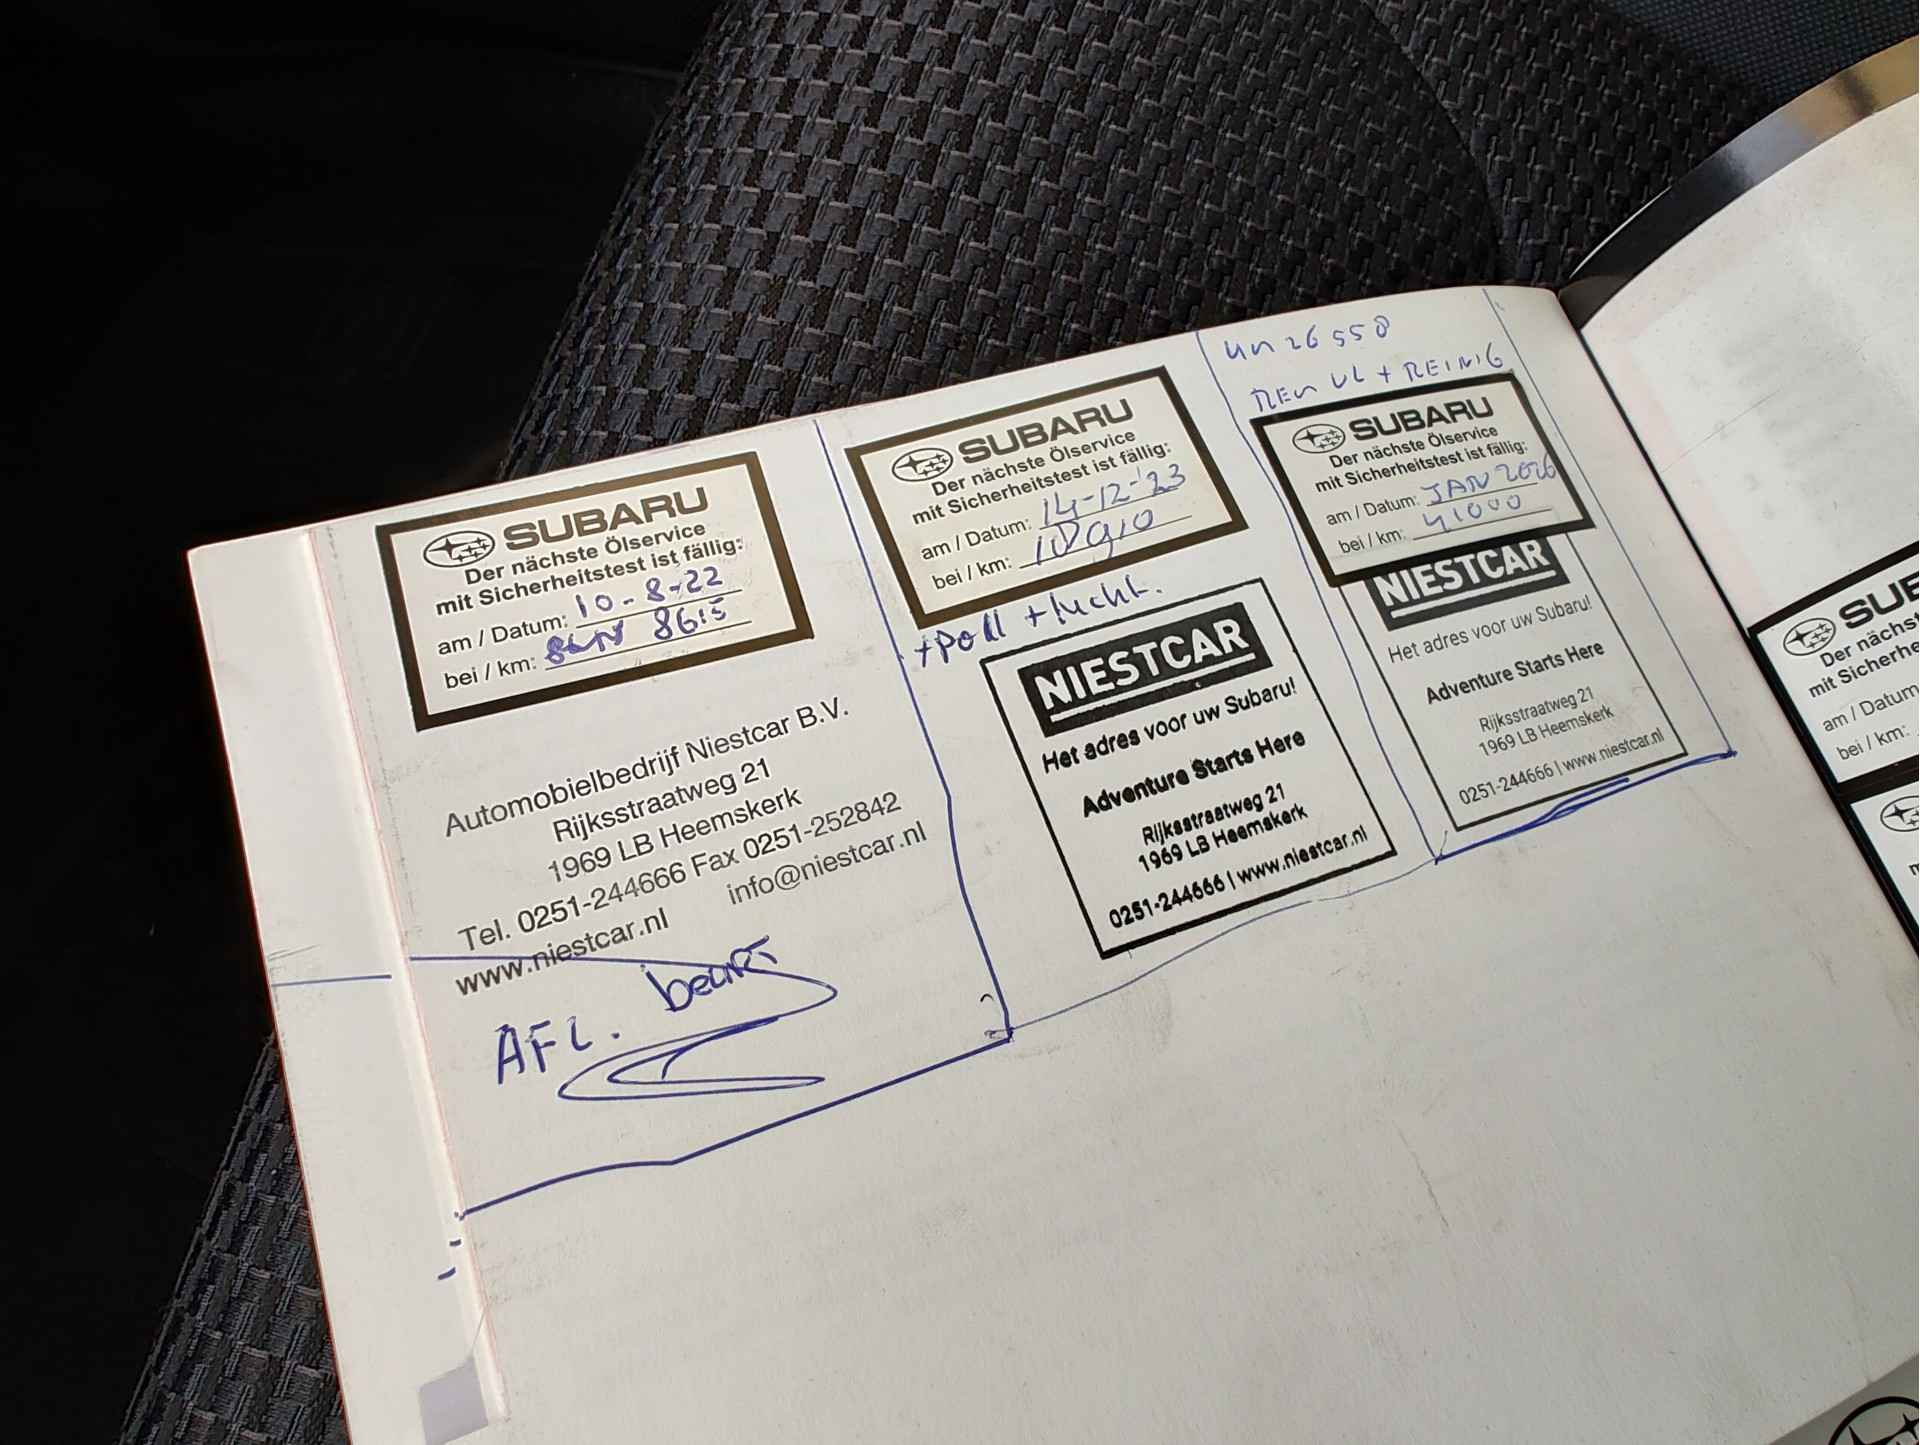 SUBARU
Der nächste Ölservice
mit Sicherheitstest ist fällig:
am / Datum: 10-8-22
bei / km: 8615
Automobielbedrijf Niestcar B.V.
Rijksstraatweg 21
1969 LB Heemskerk
Tel. 0251-244666 Fax 0251-252842
www.niestcar.nl info@niestcar.nl
AFL. beurt
SUBARU
Der nächste Ölservice
mit Sicherheitstest ist fällig:
am / Datum: 14-12-'23
bei / km:
+ poll + lucht.
NIESTCAR
Het adres voor uw Subaru!
Adventure Starts Here
Rijksstraatweg 21
1969 LB Heemskerk
0251-244666 | www.niestcar.nl
26558
REM VL + REINIG
SUBARU
Der nächste Ölservice
mit Sicherheitstest ist fällig:
am / Datum: JAN 2026
bei / km: 41000
NIESTCAR
Het adres voor uw Subaru!
Adventure Starts Here
Rijksstraatweg 21
1969 LB Heemskerk
0251-244666 | www.niestcar.nl
SUB
Der nächst
mit Sicherhe
am / Datum
bei / km: